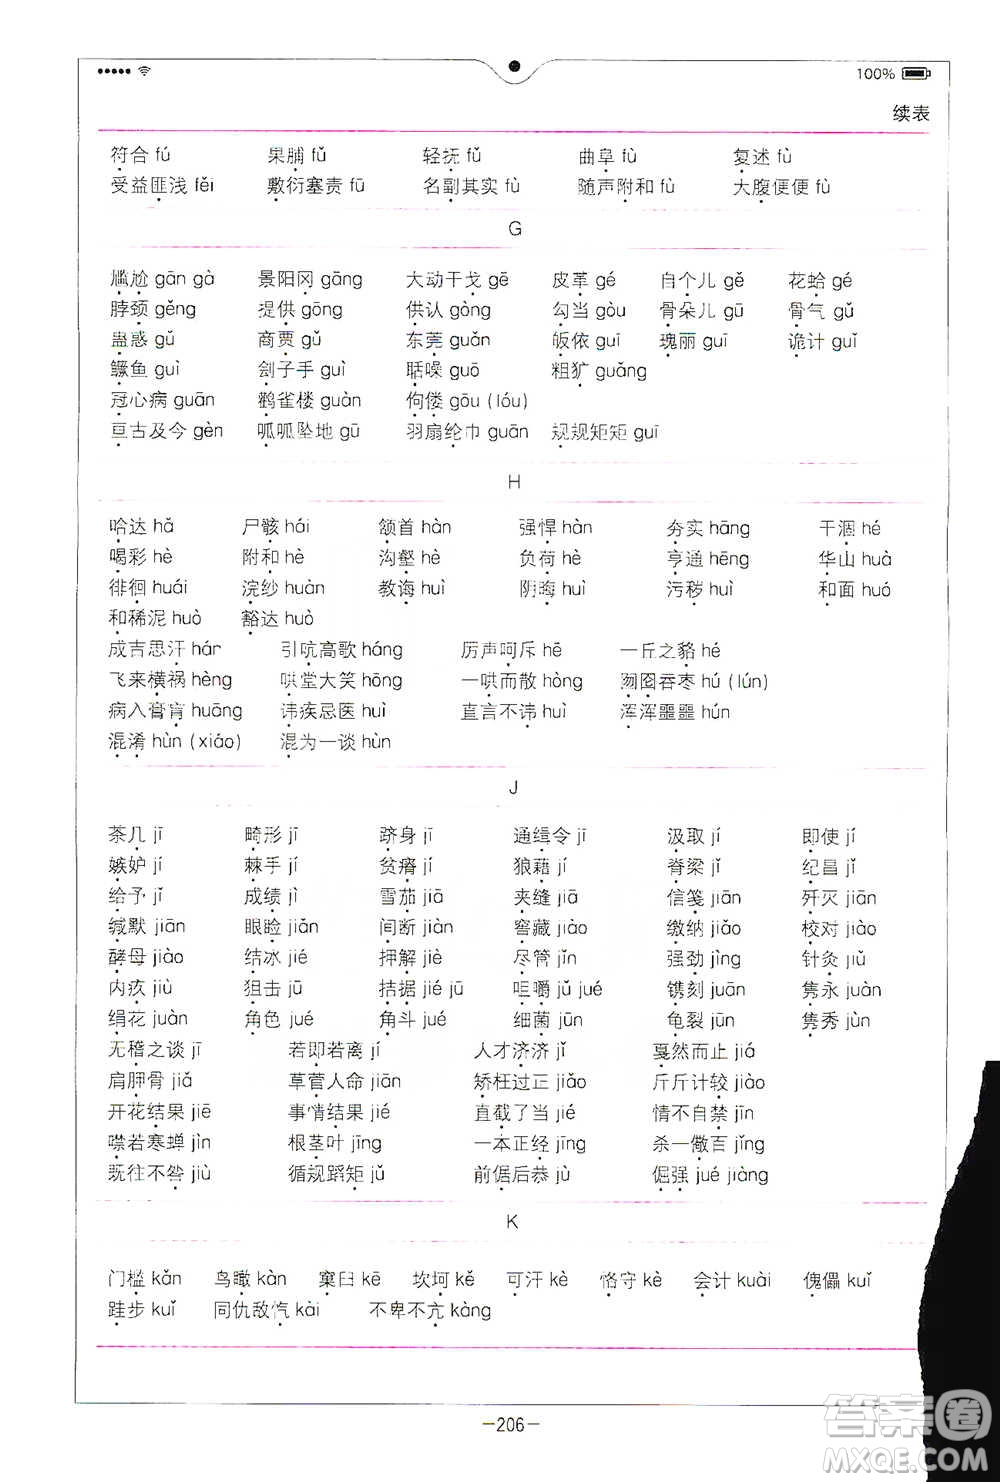 100%
续表
符合 fú 果脯 fǔ 轻抚 fǔ 曲阜 fù 复述 fù
受益匪浅 fěi 敷衍塞责 fū 名副其实 fù 随声附和 fù 大腹便便 fù
G
尴尬 gān gà 景阳冈 gāng 大动干戈 gē 皮革 gé 自个儿 gě 花蛤 gé
脖颈 gěng 提供 gōng 供认 gòng 勾当 gòu 骨朵儿 gū 骨气 gǔ
蛊惑 gǔ 商贾 gǔ 东莞 guǎn 皈依 guī 瑰丽 guī 诡计 guǐ
鳜鱼 guì 刽子手 guì 聒噪 guō 粗犷 guǎng
冠心病 guān 鹳雀楼 guàn 佝偻 gōu (lóu)
亘古及今 gèn 呱呱坠地 gū 羽扇纶巾 guān 规规矩矩 guī
H
哈达 hǎ 尸骸 hái 颔首 hàn 强悍 hàn 夯实 hāng 干涸 hé
喝彩 hè 附和 hè 沟壑 hè 负荷 hè 亨通 hēng 华山 huà
徘徊 huái 浣纱 huàn 教诲 huì 阴晦 huì 污秽 huì 和面 huó
和稀泥 huò 豁达 huò
成吉思汗 hán 引吭高歌 háng 厉声呵斥 hē 一丘之貉 hé
飞来横祸 hèng 哄堂大笑 hōng 一哄而散 hòng 囫囵吞枣 hú (lún)
病入膏肓 huāng 讳疾忌医 huì 直言不讳 huì 浑浑噩噩 hún
混淆 hùn (xiáo) 混为一谈 hùn
J
茶几 jī 畸形 jī 跻身 jī 通缉令 jī 汲取 jí 即使 jí
嫉妒 jí 棘手 jí 贫瘠 jí 狼藉 jí 脊梁 jǐ 纪昌 jǐ
给予 jǐ 成绩 jì 雪茄 jiā 夹缝 jiā 信笺 jiān 歼灭 jiān
缄默 jiān 眼睑 jiǎn 间断 jiàn 窖藏 jiào 缴纳 jiǎo 校对 jiào
酵母 jiào 结冰 jié 押解 jiè 尽管 jǐn 强劲 jìng 针灸 jiǔ
内疚 jiù 狙击 jū 拮据 jié jū 咀嚼 jǔ jué 镌刻 juān 隽永 juàn
绢花 juàn 角色 jué 角斗 jué 细菌 jūn 龟裂 jūn 隽秀 jùn
无稽之谈 jī 若即若离 jí 人才济济 jǐ 戛然而止 jiá
肩胛骨 jiǎ 草菅人命 jiān 矫枉过正 jiǎo 斤斤计较 jiào
开花结果 jiē 事情结果 jié 直截了当 jié 情不自禁 jīn
噤若寒蝉 jìn 根茎叶 jīng 一本正经 jīng 杀一儆百 jǐng
既往不咎 jiù 循规蹈矩 jǔ 前倨后恭 jù 倔强 jué jiàng
K
门槛 kǎn 鸟瞰 kàn 窠臼 kē 坎坷 kě 可汗 kè 恪守 kè 会计 kuài 傀儡 kuǐ
跬步 kuǐ 同仇敌忾 kài 不卑不亢 kàng
-206-
答案圈
MXQE.COM